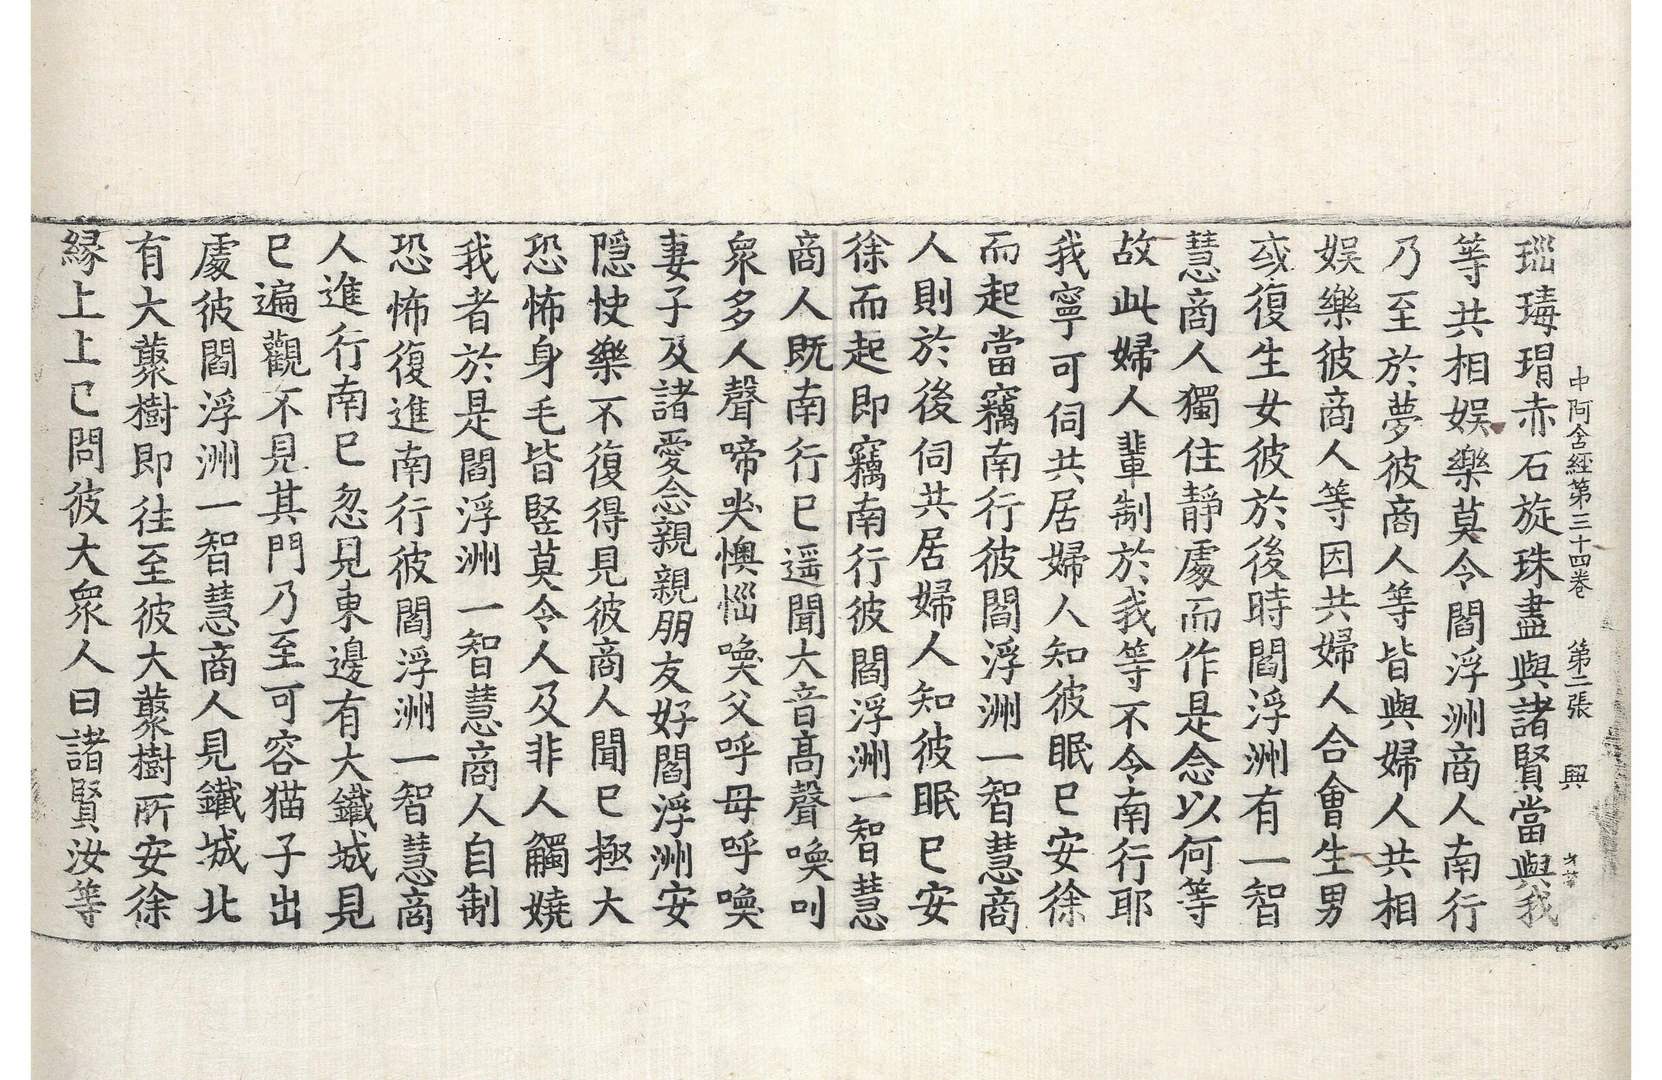 中阿含經第三十四卷 第二張 興
瑙瑇瑁赤石旋珠盡與諸賢當與我
等共相娛樂莫令閻浮洲商人南行
乃至於夢彼商人等皆與婦人共相
娛樂彼商人等因共婦人合會生男
或復生女彼於後時閻浮洲有一智
慧商人獨住靜處而作是念以何等
故此婦人輩制於我等不令南行耶
我寧可伺共居婦人知彼眠已安徐
而起當竊南行彼閻浮洲一智慧商
人則於後伺共居婦人知彼眠已安
徐而起即竊南行彼閻浮洲一智慧
商人既南行已遥聞大音高聲喚叫
衆多人聲啼哭懊惱喚父呼母呼喚
妻子及諸愛念親親朋友好閻浮洲安
隱快樂不復得見彼商人聞已極大
恐怖身毛皆竪莫令人及非人觸嬈
我者於是閻浮洲一智慧商人自制
恐怖復進南行彼閻浮洲一智慧商
人進行南已忽見東邊有大鐵城見
已遍觀不見其門乃至可容猫子出
處彼閻浮洲一智慧商人見鐵城北
有大叢樹即往至彼大叢樹所安徐
緣上上已問彼大衆人曰諸賢汝等